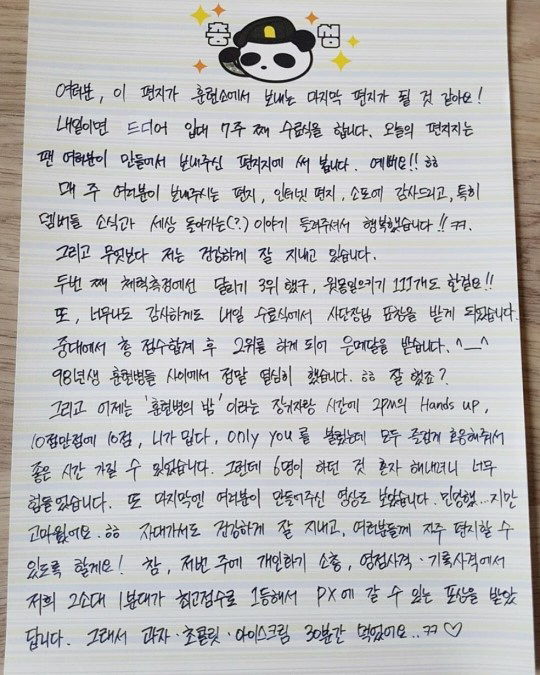 충 성
여러분, 이 편지가 훈련소에서 보내는 마지막 편지가 될 것 같아요!
내일이면 드디어 입대 7주 째 수료식을 합니다. 오늘의 편지지는
팬 여러분이 만들어서 보내주신 편지지에 써 봅니다. 예뻐요!! ㅎㅎ
매 주 여러분이 보내주시는 편지, 인터넷 편지, 소포에 감사드리고, 특히
멤버들 소식과 세상 돌아가는(?) 이야기 들려주셔서 행복했습니다!! ㅋㅋ.
그리고 무엇보다 저는 건강하게 잘 지내고 있습니다.
두번 째 체력측정에선 달리기 3위 했구, 윗몸일으키기 111개도 한걸요!!
또, 너무나도 감사하게도 내일 수료식에서 사단장님 표창을 받게 되었습니다.
중대에서 총 점수합계 후 2위를 하게 되어 은메달을 받습니다. ^__^
98년생 훈련병들 사이에서 정말 열심히 했습니다. ㅎㅎ 잘 했죠?
그리고 어제는 '훈련병의 밤' 이라는 장기자랑 시간에 2PM의 Hands up,
10점만점에 10점, 니가 밉다, Only you 를 불렀는데 모두 즐겁게 호응해줘서
좋은 시간 가질 수 있었습니다. 그런데 6명이 하던 것 혼자 해내려니 너무
힘들었습니다. 또 마지막엔 여러분이 만들어주신 영상도 보았습니다. 민망했...지만
고마웠어요. ㅎㅎ 자대가서도 건강하게 잘 지내고, 여러분들께 자주 편지할 수
있도록 할게요! 참, 저번 주에 개인화기 소총, 영점사격·기록사격에서
저희 2소대 1분대가 최고점수로 1등해서 PX에 갈 수 있는 포상을 받았
답니다. 그래서 과자·초콜릿·아이스크림 30분간 먹었어요..ㅋㅋ ♡